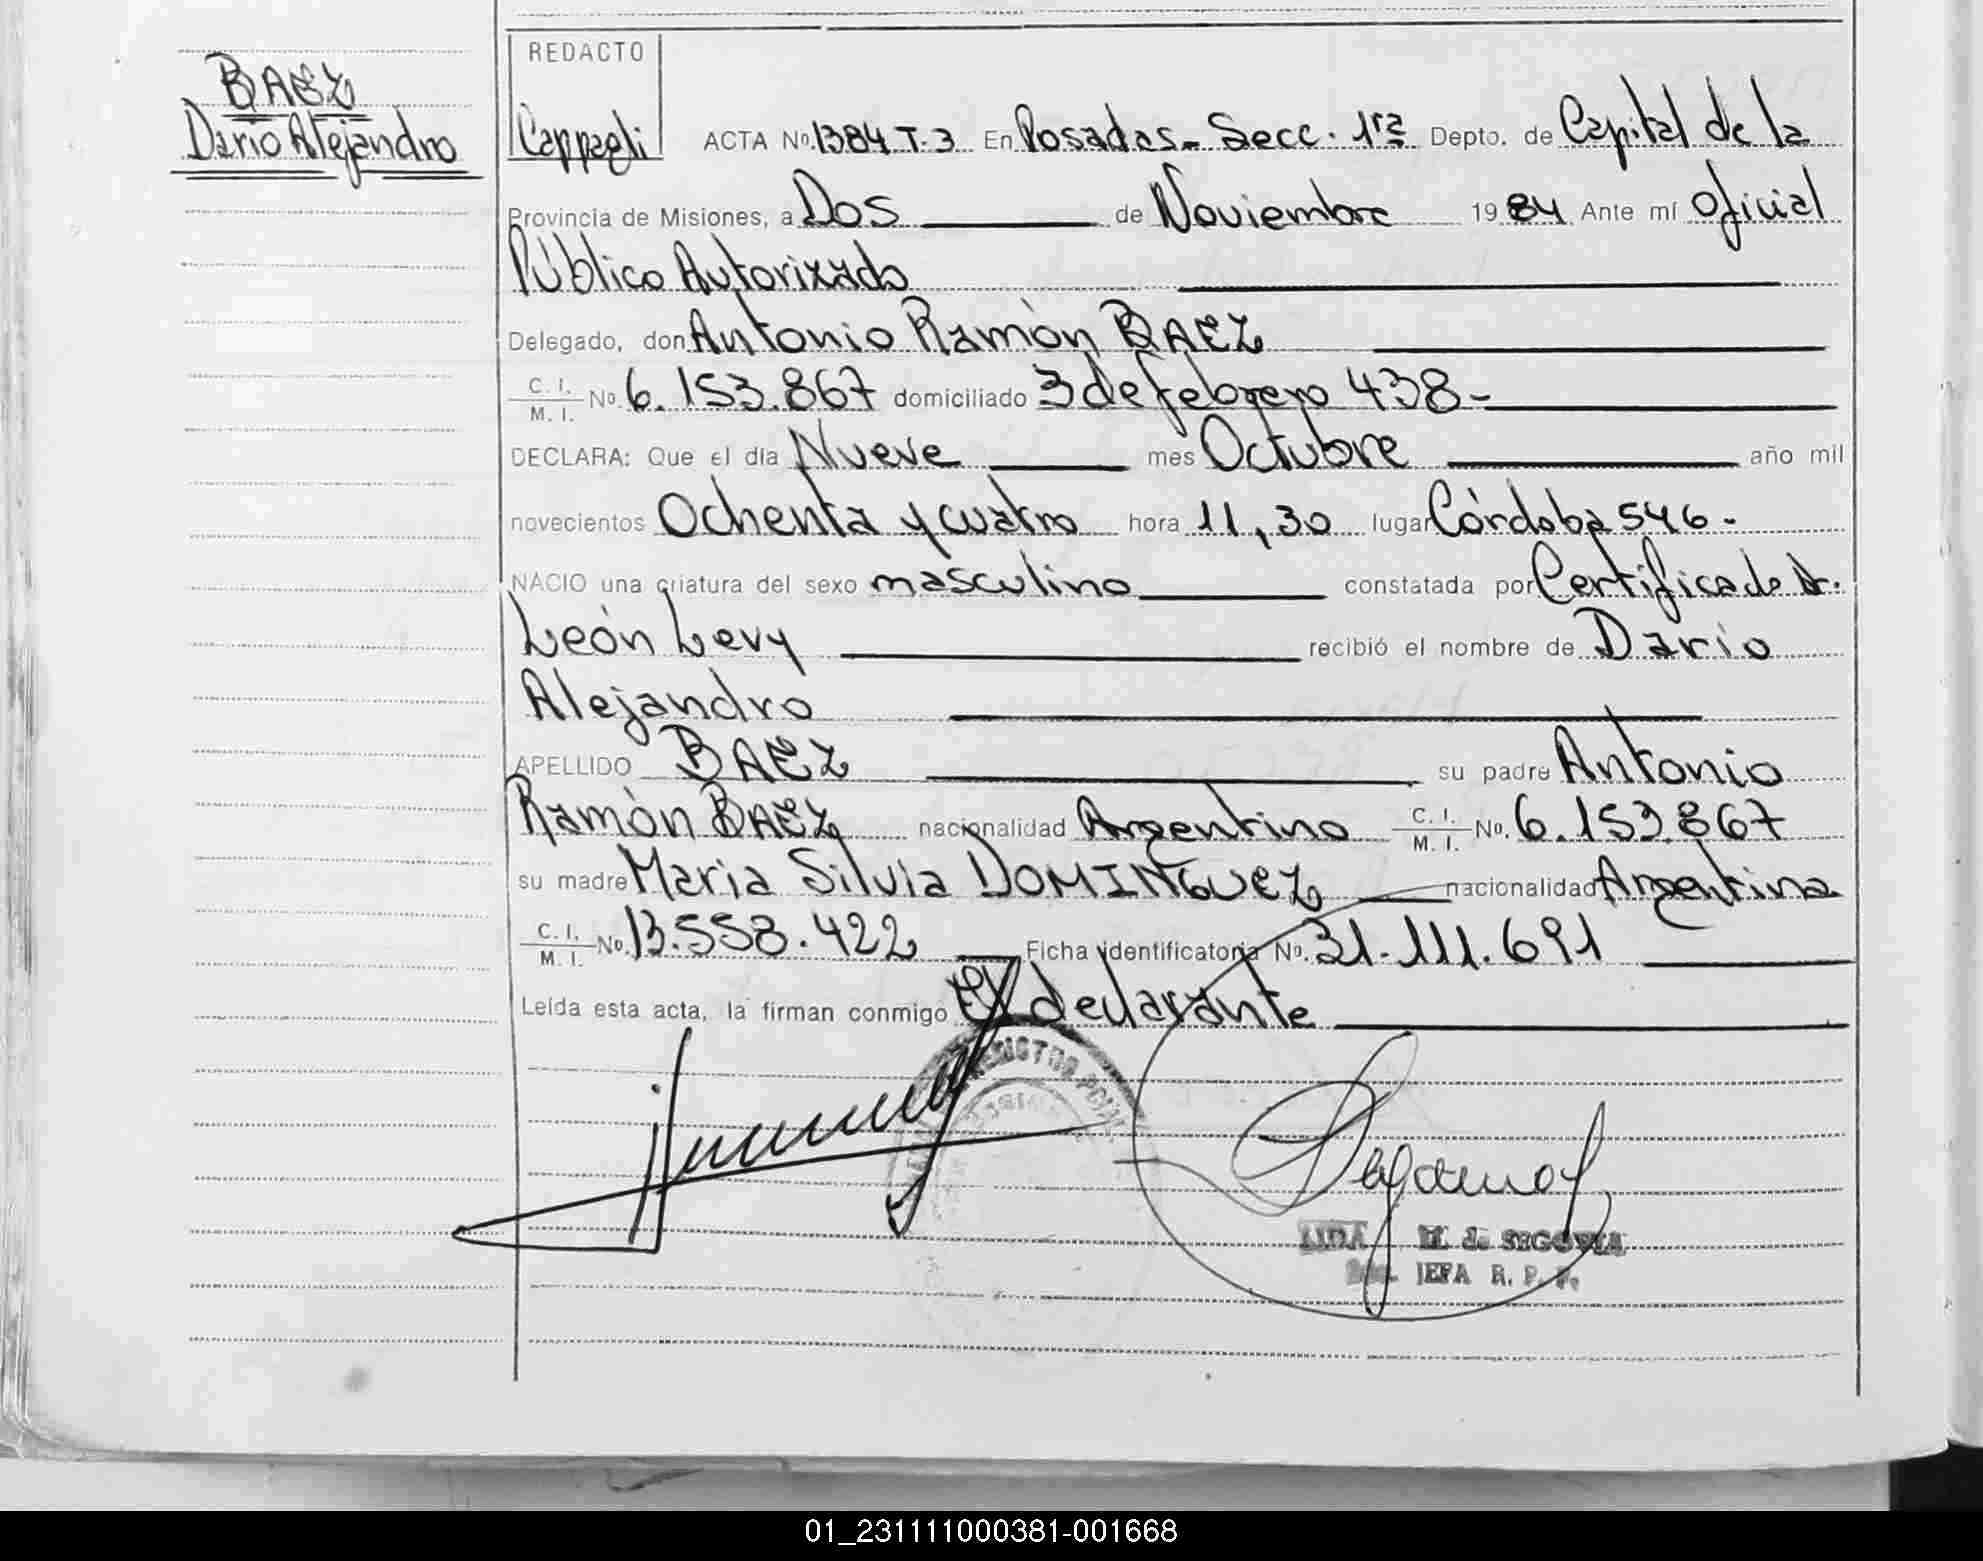 BAEZ
Dario Alejandro
REDACTO
Cappagli
ACTA Nº. 1384 T. 3 En Posadas - Secc. 1ra Depto. de Capital de la
Provincia de Misiones, a Dos de Noviembre 19 84 Ante mí Oficial
Público Autorizado
Delegado, don Antonio Ramón BAEZ
C. I. / M. I. Nº. 6.153.867 domiciliado 3 de febrero 438 -
DECLARA: Que el día Nueve mes Octubre año mil
novecientos Ochenta y cuatro hora 11,30 lugar Córdoba 546 -
NACIO una criatura del sexo masculino constatada por Certificado Dr.
León Levy recibió el nombre de Dario
Alejandro
APELLIDO BAEZ su padre Antonio
Ramón BAEZ nacionalidad Argentino C. I. / M. I. Nº. 6.153.867
su madre Maria Silvia DOMINGUEZ nacionalidad Argentina
C. I. / M. I. Nº. 13.558.422 Ficha identificatoria Nº. 31.111.691
Leída esta acta, la firman conmigo El declarante
LIDA M. de SEGOVIA
JEFA R. P. P.
01_231111000381-001668